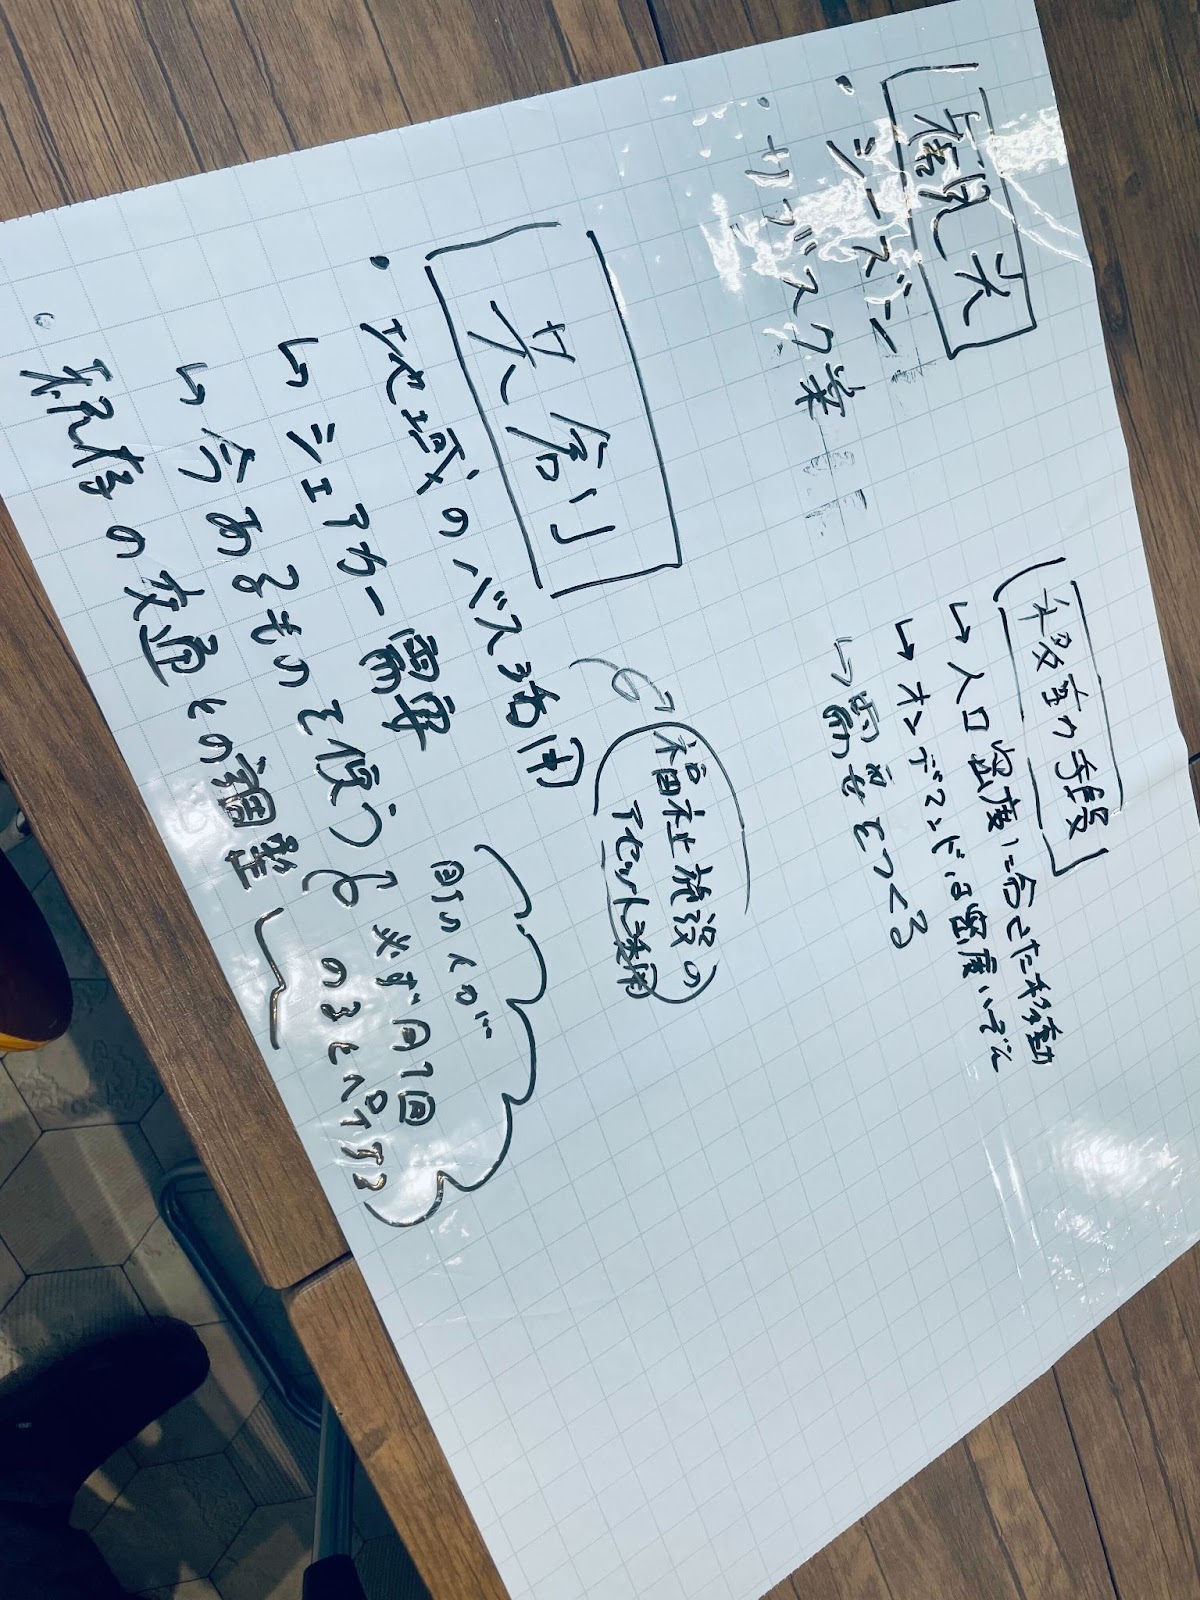 観光
・シーズン
・サブスク案
移動の手段
↳人口密度に合せた移動
↳オンデマンドは密度いぞん
↳需要をつくる
共創
・地域のバス活用
↳シェアカー需要
↳今あるものを使う
・祝存の交通との調整
福祉施設の
アセット活用
町の人が…
必ず月1回
のるとペイする